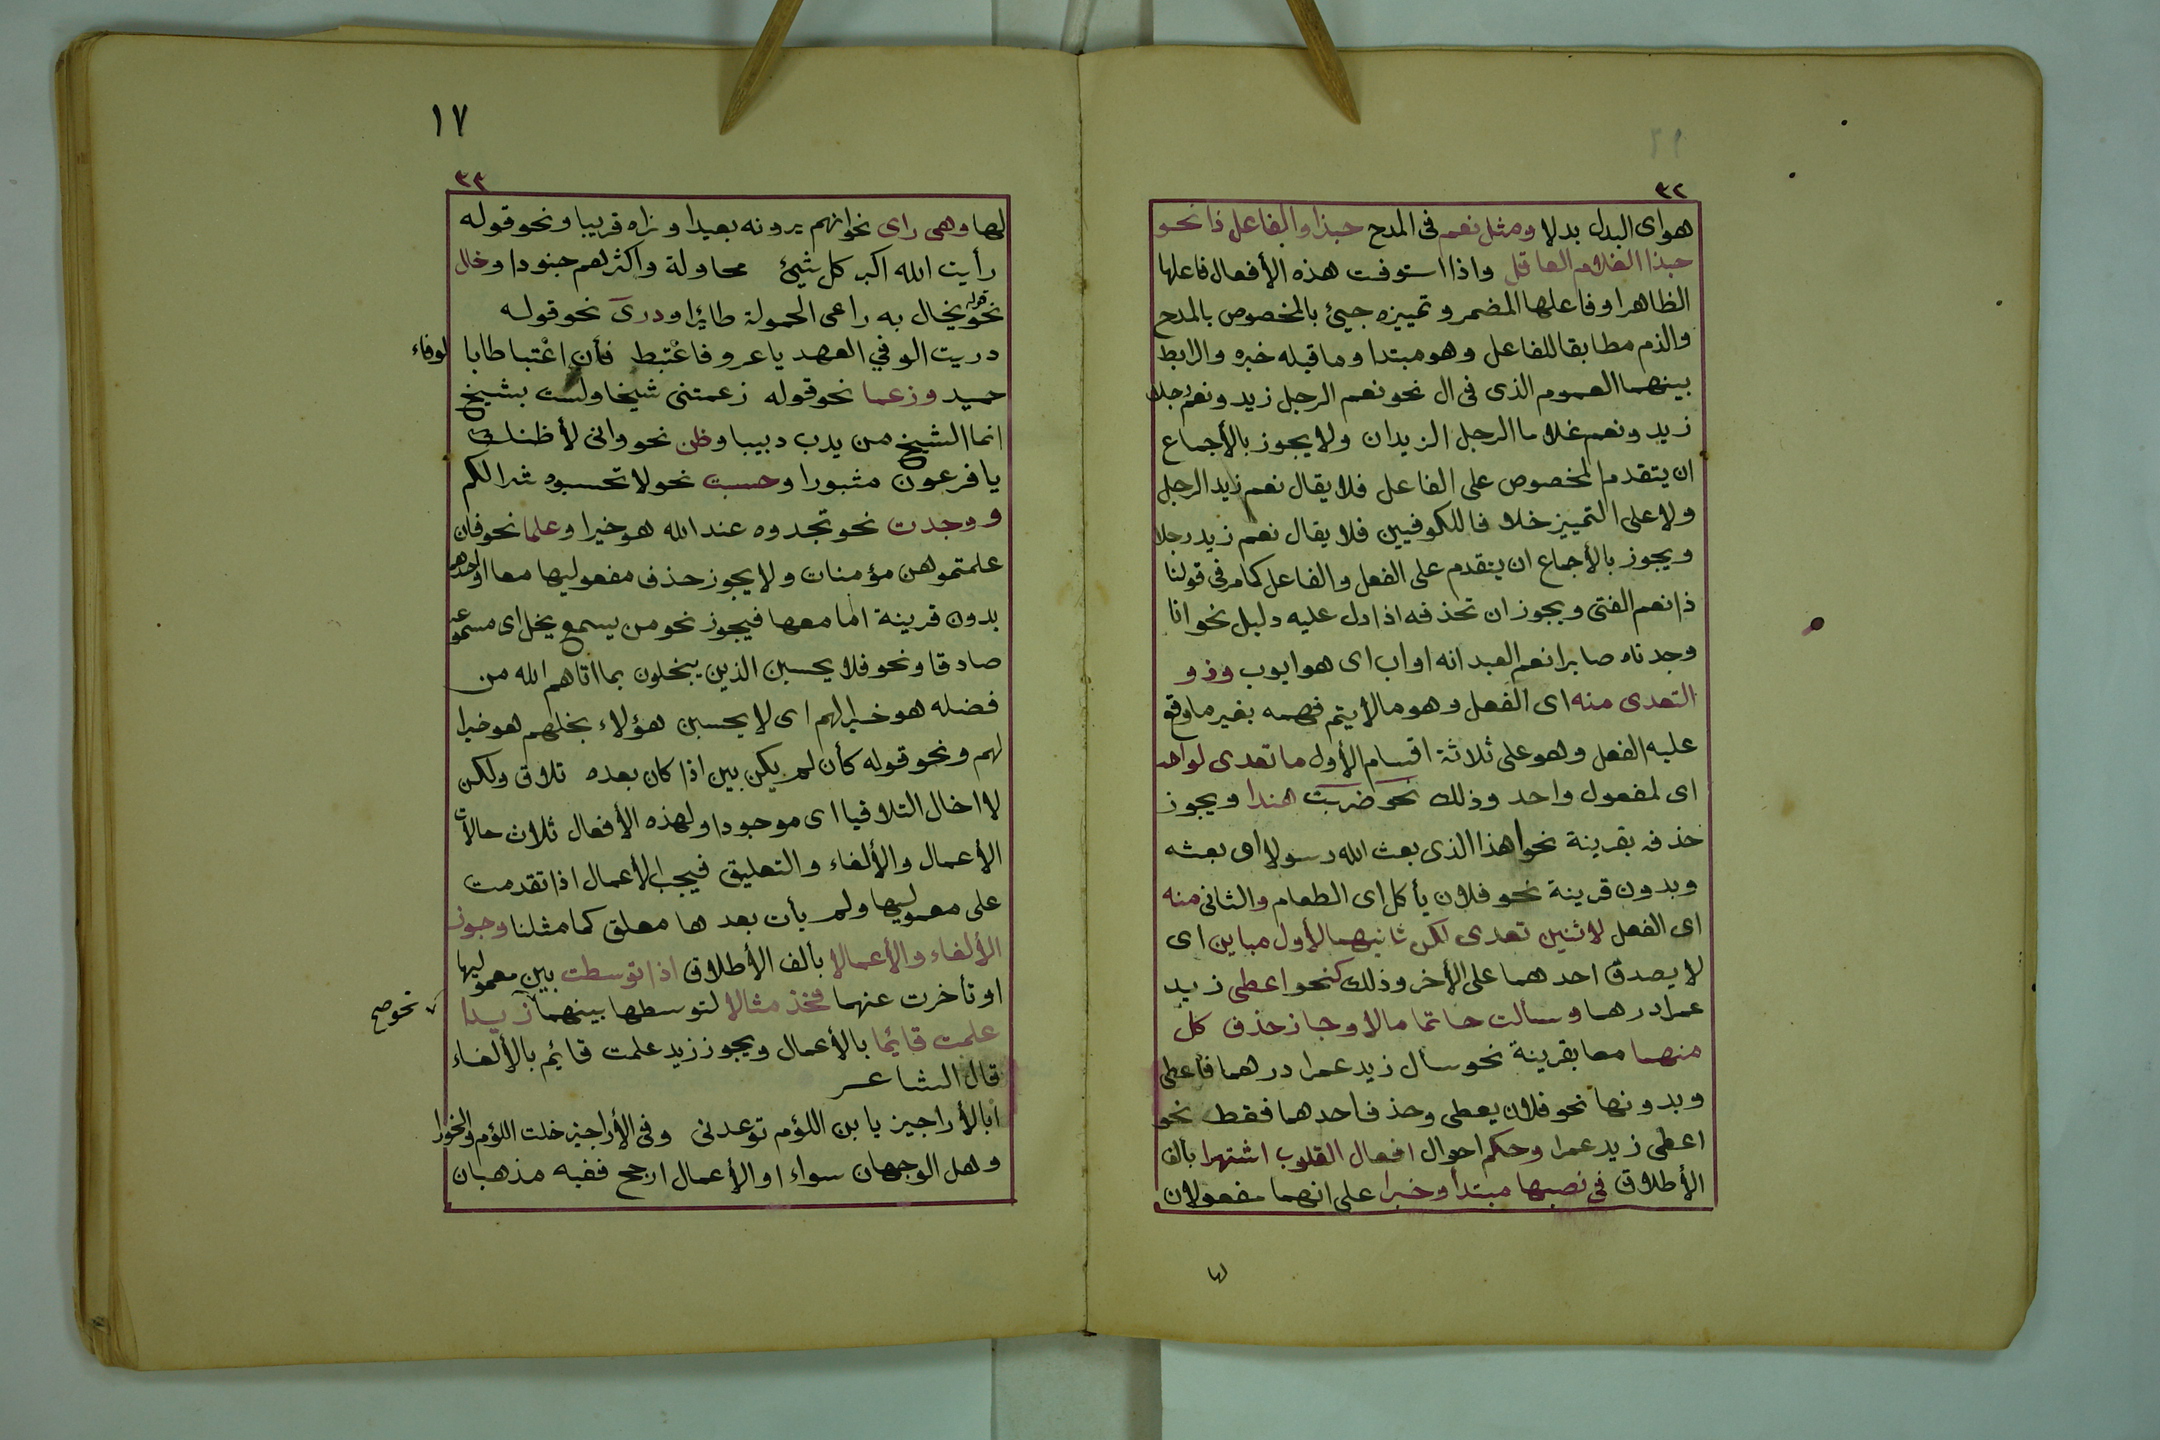 ٣٢
هو اى البدل بدلا ومثل نعم فى المدح حبذا والفاعل ذا نحو
حبذا الغلام العاقل واذا استوفت هذه الأفعال فاعلها
الظاهر او فاعلها المضمر وتمييزه جيئ بالمخصوص بالمدح
والذم مطابقا للفاعل وهو مبتدا وما قبله خبره والرابط
بينهما العموم الذى فى ال نحو نعم الرجل زيد ونعم رجلا
زيد ونعم غلاما الرجل الزيدان ولا يجوز بالأجماع
ان يتقدم المخصوص على الفاعل فلا يقال نعم زيد الرجل
ولا على التمييز خلافا للكوفيين فلا يقال نعم زيد رجلا
ويجوز بالأجماع ان يتقدم على الفعل والفاعل كما مر فى قولنا
ذا نعم الفتى ويجوز ان تحذفه اذا دل عليه دليل نحو انا
وجدناه صابرا نعم العبد انه اواب اى هو ايوب وذو
التعدى منه اى الفعل وهو ما لا يتم فهمه بغير ما وقع
عليه الفعل وهو على ثلاثة اقسام الأول ما تعدى لواحد
اى لمفعول واحد وذلك نحو ضربت هندا ويجوز
حذفه بقرينة نحو اهذا الذى بعث الله رسولا اى بعثه
وبدون قرينة نحو فلان يأكل اى الطعام والثانى منه
اى الفعل لاثنين تعدى لكن ثانيهما لأول مباين اى
لا يصدق احدهما على الأخر وذلك كنحو اعطى زيد
عمرا درهما وسألت حاتما مالا وجاز حذف كل
منهما معا بقرينة نحو سأل زيد عمرا درهما فاعطى
وبدونها نحو فلان يعطى وحذف احدهما فقط نحو
اعطى زيد عمرا وحكم احوال افعال القلوب اشتهرا بالف
الأطلاق فى نصبها مبتدأ وخبرا على انهما مفعولان
لها
١٧
٣٣
لها وهى راى نحو انهم يرونه بعيدا ونراه قريبا ونحو قوله
رأيت الله اكبر كل شيئ محاولة واكثرهم جنودا وخال
نحو قوله يخال به راعى الحمولة طائرا ودرى نحو قوله
دريت الوفي العهد يا عرو فاغتبط فأن اغتباطا با لوفاء
حميد وزعما نحو قوله زعمتنى شيخا ولست بشيخ
انما الشيخ من يدب دبيبا وظن نحو وانى لأظنك
يا فرعون مثبورا وحسبت نحو لا تحسبوه شرا لكم
ووجدت نحو تجدوه عند الله هو خيرا وعلما نحو فان
علمتموهن مؤمنات ولا يجوز حذف مفعوليها معا او احدهما
بدون قرينة اما معها فيجوز نحو من يسمع يخل اى مسموعه
صادقا ونحو فلا يحسبن الذين يبخلون بما اتاهم الله من
فضله هو خيرا لهم اى لا يحسبن هؤلاء بخلهم هو خيرا
لهم ونحو قوله كأن لم يكن بين اذا كان بعده تلاق ولكن
لا اخال التلاقيا اى موجودا ولهذه الأفعال ثلاث حالات
الأعمال والألغاء والتعليق فيجب الأعمال اذا تقدمت
على معموليها ولم يأت بعدها معلق كما مثلنا وجوز
الألغاء والأعمالا بألف الأطلاق اذا توسطت بين معموليها
او تأخرت عنهما فخذ مثالا لتوسطها بينهما زيدا
نحو صح
علمت قائما بالأعمال ويجوز زيد علمت قائم بالألغاء
قال الشاعر
ابالأراجيز يا بن اللؤم توعدنى وفى الأراجيز خلت اللؤم والخورا
وهل الوجهان سواء او الأعمال ارجح ففيه مذهبان